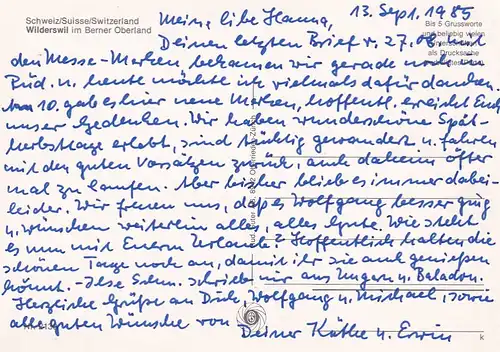 Schweiz/Suisse/Switzerland
Wilderswil im Berner Oberland
13. Sept. 1985
Meine liebe Hanna,
Bis 5 Grussworte
und beliebig vielen
als Drucksache
Deinen letzten Brief v. 27.08. mit
den Messe-Marken, bekamen wir gerade noch vor
u. heute möchte ich vielmals dafür danken.
Am 10. gab es hier neue Marken, hoffentl. erreicht Euch
unser Gedenken. Wir haben wunderschöne Spät-
herbsttage erlebt, sind tüchtig gewandert u. fahren
mit den guten Vorsätzen zurück, auch daheim öfter
mal zu laufen. Aber bisher blieb es immer dabei-
leider. Wir freuen uns, daß es Wolfgang besser ging
u. wünschen weiterhin alles, alles Gute. Wie steht
es nun mit Euerm Urlaub? Hoffentlich halten die
schönen Tage noch an, damit ihr sie auch genießen
könnt. - Ilse schrieb mir aus Ungarn u. Balaton.
Herzliche Grüße an Dich, Wolfgang u. Michael, sowie
alle guten Wünsche von
Deiner Käthe u. Erwin
k